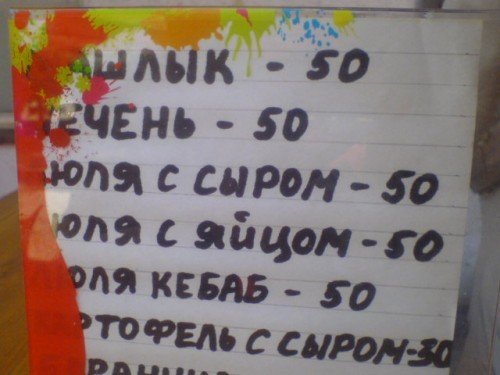 АШЛЫК - 50
ЕЧЕНЬ - 50
ЮЛЯ С СЫРОМ - 50
ЮЛЯ С ЯЙЦОМ - 50
ЮЛЯ КЕБАБ - 50
РТОФЕЛЬ С СЫРОМ-30